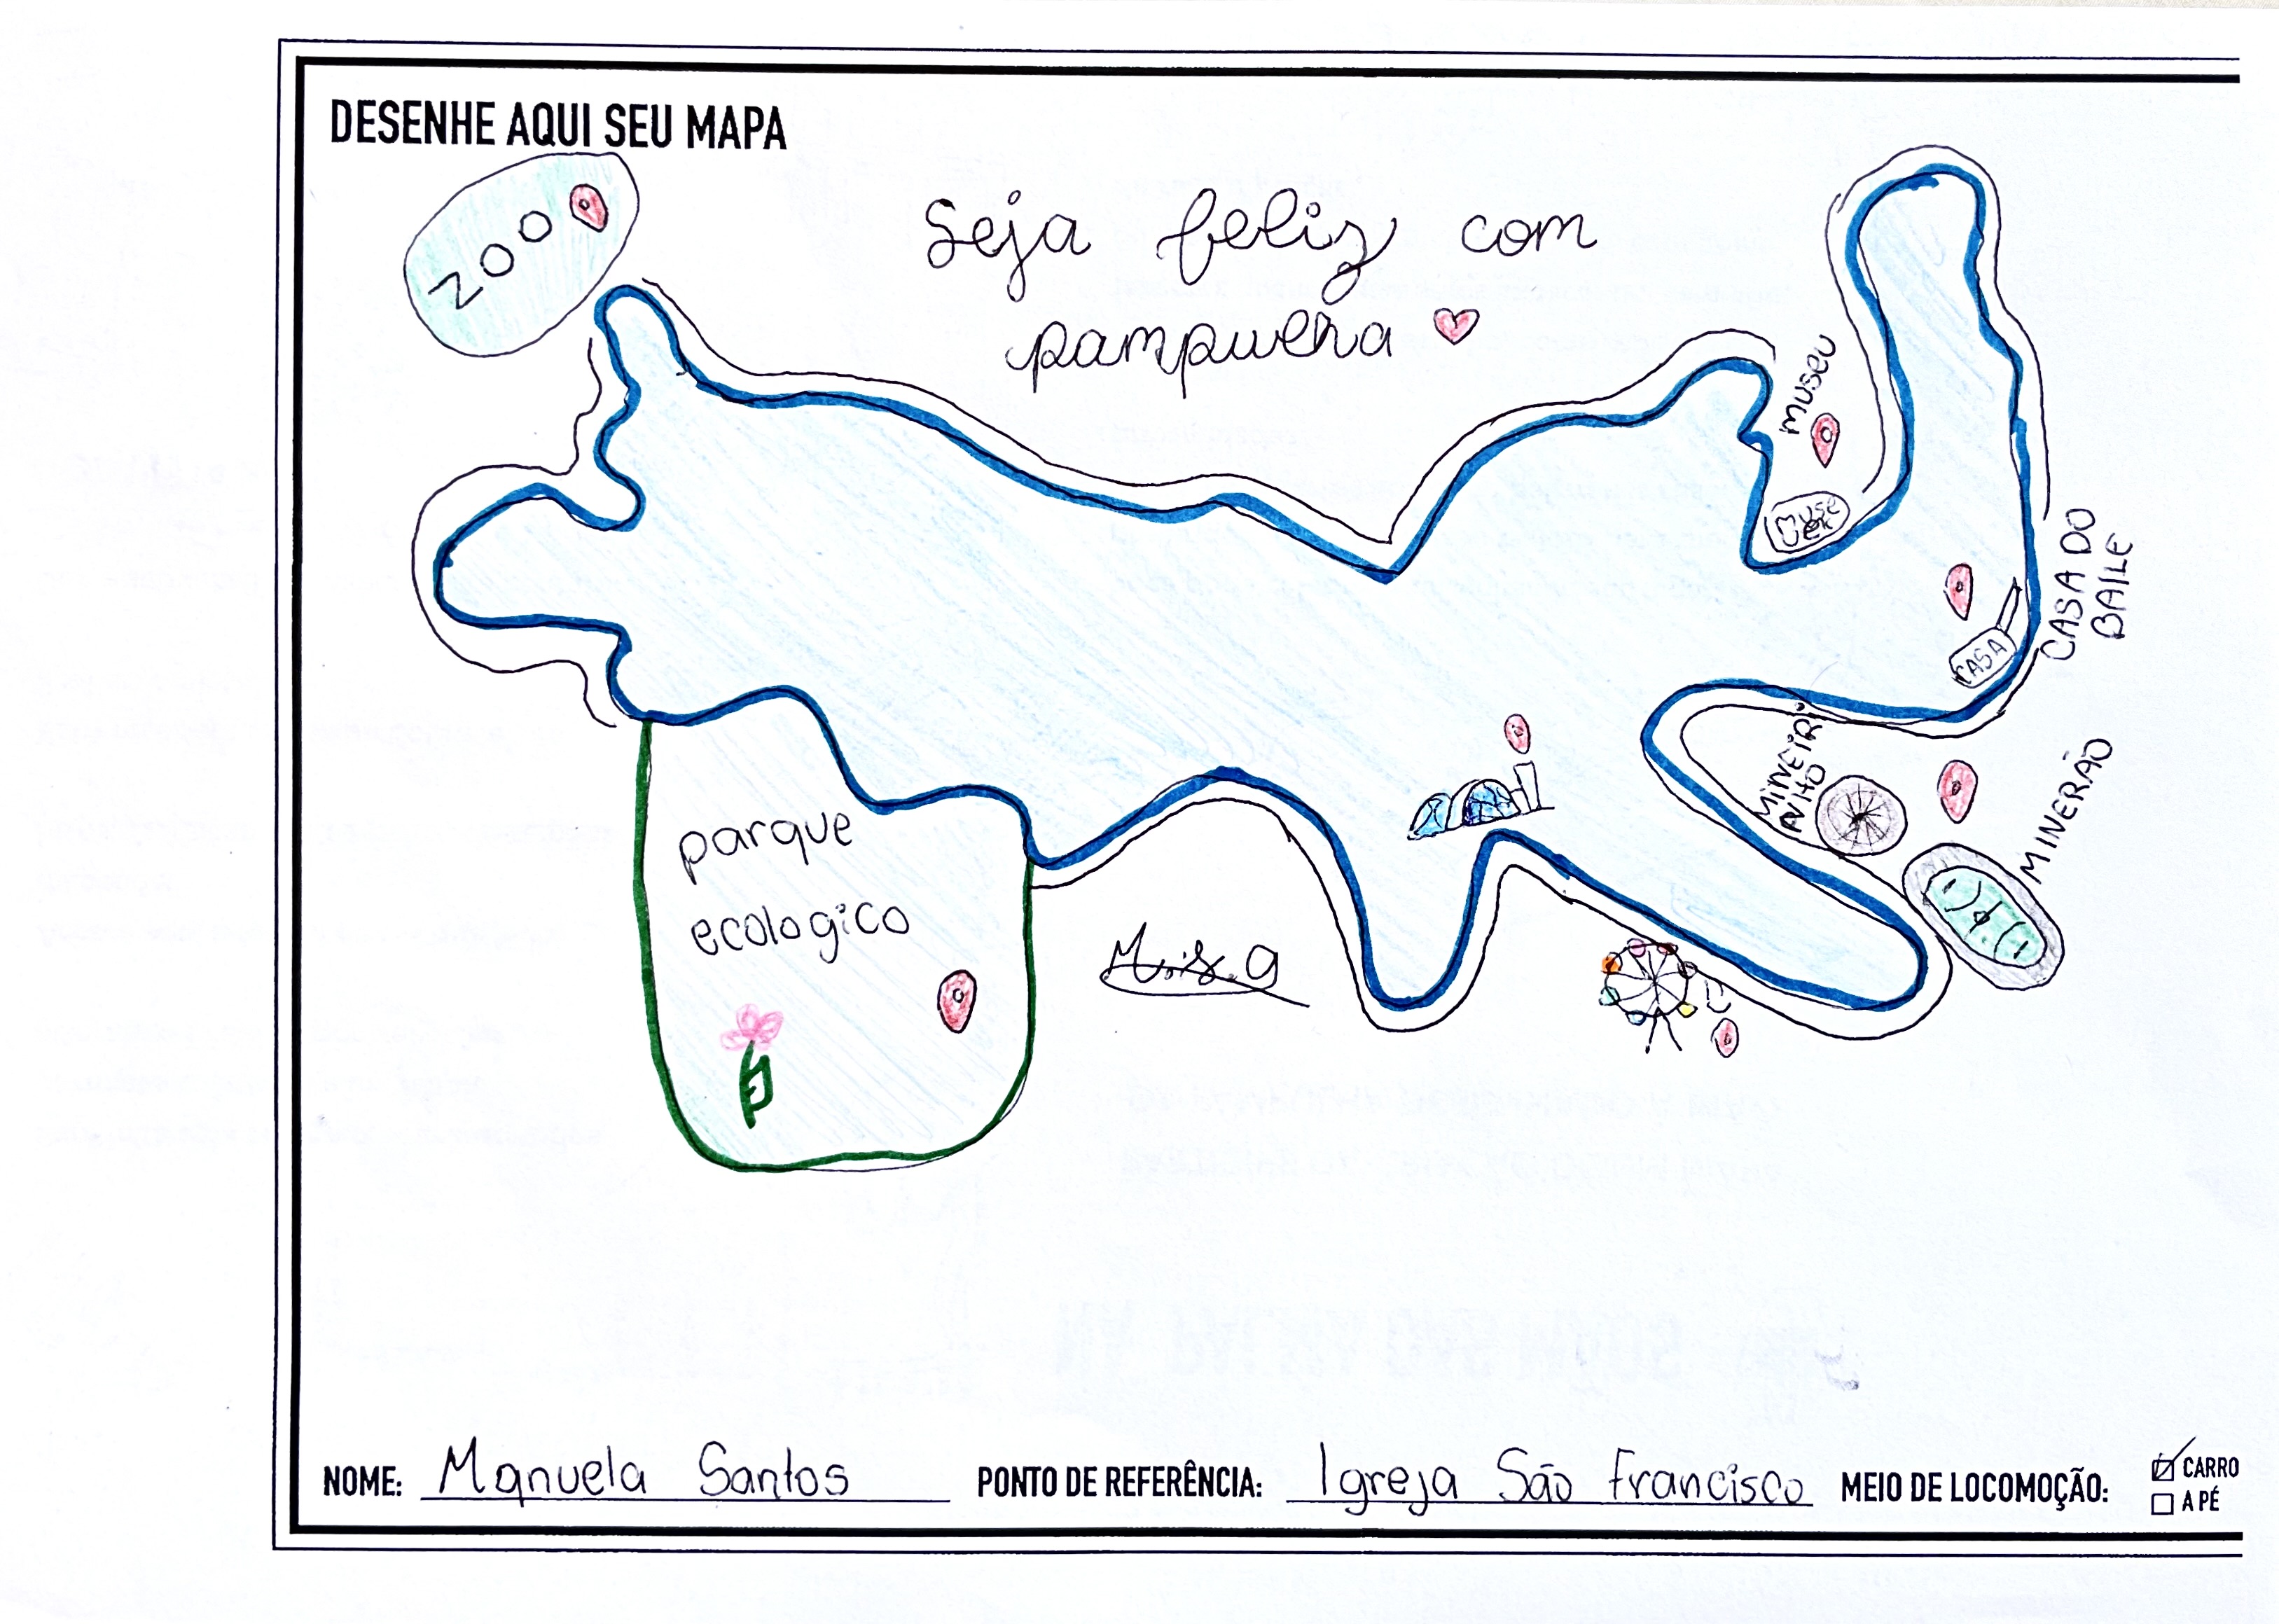 DESENHE AQUI SEU MAPA
ZOO
Seja feliz com
pampulha
MUSEU
CASA DO
BAILE
CASA
MINEIRI
NHO
MINERÃO
parque
ecologico
NOME: Manuela Santos PONTO DE REFERÊNCIA: Igreja São Francisco MEIO DE LOCOMOÇÃO: CARRO
A PÉ